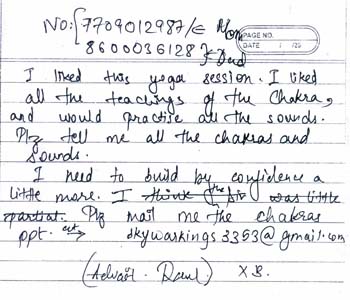 NO:{7709012987/€ Mom
8600036128} Dad
PAGE NO.
DATE / /20
I liked this yoga session. I liked
all the teachings of the Chakra,
and would practise all the sounds.
Plz tell me all the chakras and
sounds.
I need to build by confidence a
little more. I think the was little
partial. Plz mail me the chakras
ppt. skywarkings3353@gmail.com
(Advait . )